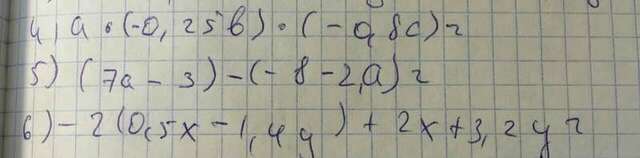 4, a · (-0,25b) · (-0,8c) =
5) (7a - 3) - (-8 - 2,a) =
6) - 2 (0,5x - 1,4y) + 2x + 3,2y =